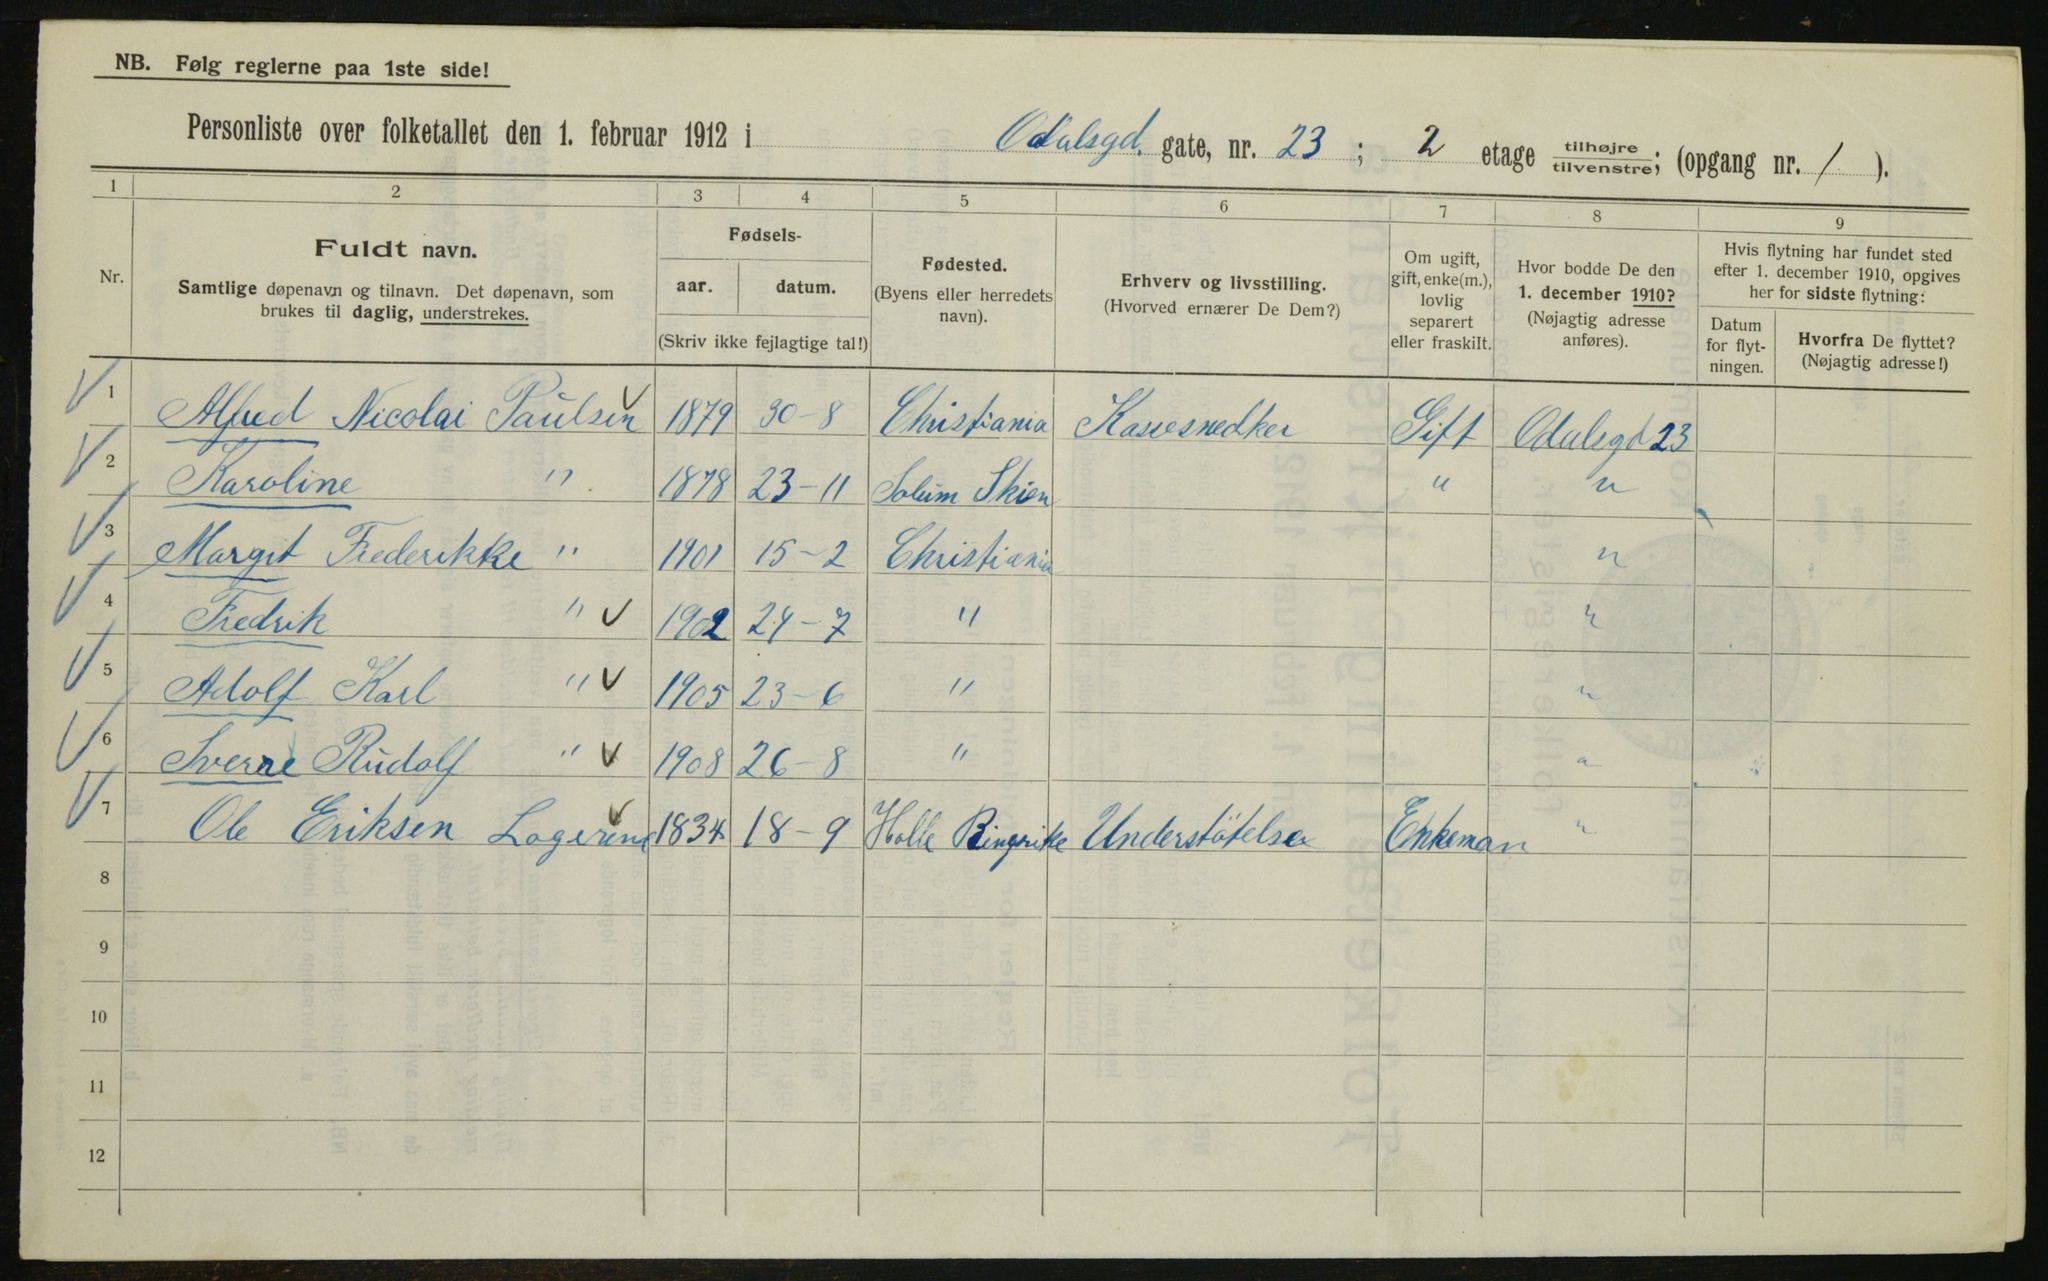 NB. Følg reglerne paa 1ste side!
Personliste over folketallet den 1. februar 1912 i Odalsgd. gate, nr. 23 ; 2 etage tilhøjre/tilvenstre; (opgang nr. 1 ).
1 2 3 4 5 6 7 8 9
Nr.
Fuldt navn.
Samtlige døpenavn og tilnavn. Det døpenavn, som
brukes til daglig, understrekes.
Fødsels-
aar. datum.
(Skriv ikke fejlagtige tal!)
Fødested.
(Byens eller herredets
navn).
Erhverv og livsstilling.
(Hvorved ernærer De Dem?)
Om ugift,
gift, enke(m.),
lovlig
separert
eller fraskilt.
Hvor bodde De den
1. december 1910?
(Nøjagtig adresse
anføres).
Hvis flytning har fundet sted
efter 1. december 1910, opgives
her for sidste flytning:
Datum
for flyt-
ningen.
Hvorfra De flyttet?
(Nøjagtig adresse!)
1 Alfred Nicolai Paulsen 1879 30-8 Christiania Kassesnedker Gift Odalsgd 23
2 Karoline " 1878 23-11 Solum Skien " "
3 Margit Frederikke " 1901 15-2 Christiania "
4 Fredrik " 1902 24-7 " "
5 Adolf Karl " 1905 23-6 " "
6 Sverre Rudolf " 1908 26-8 " "
7 Ole Eriksen Logerend 1834 18-9 Holle Ringrike Understøtelse Enkeman "
8
9
10
11
12